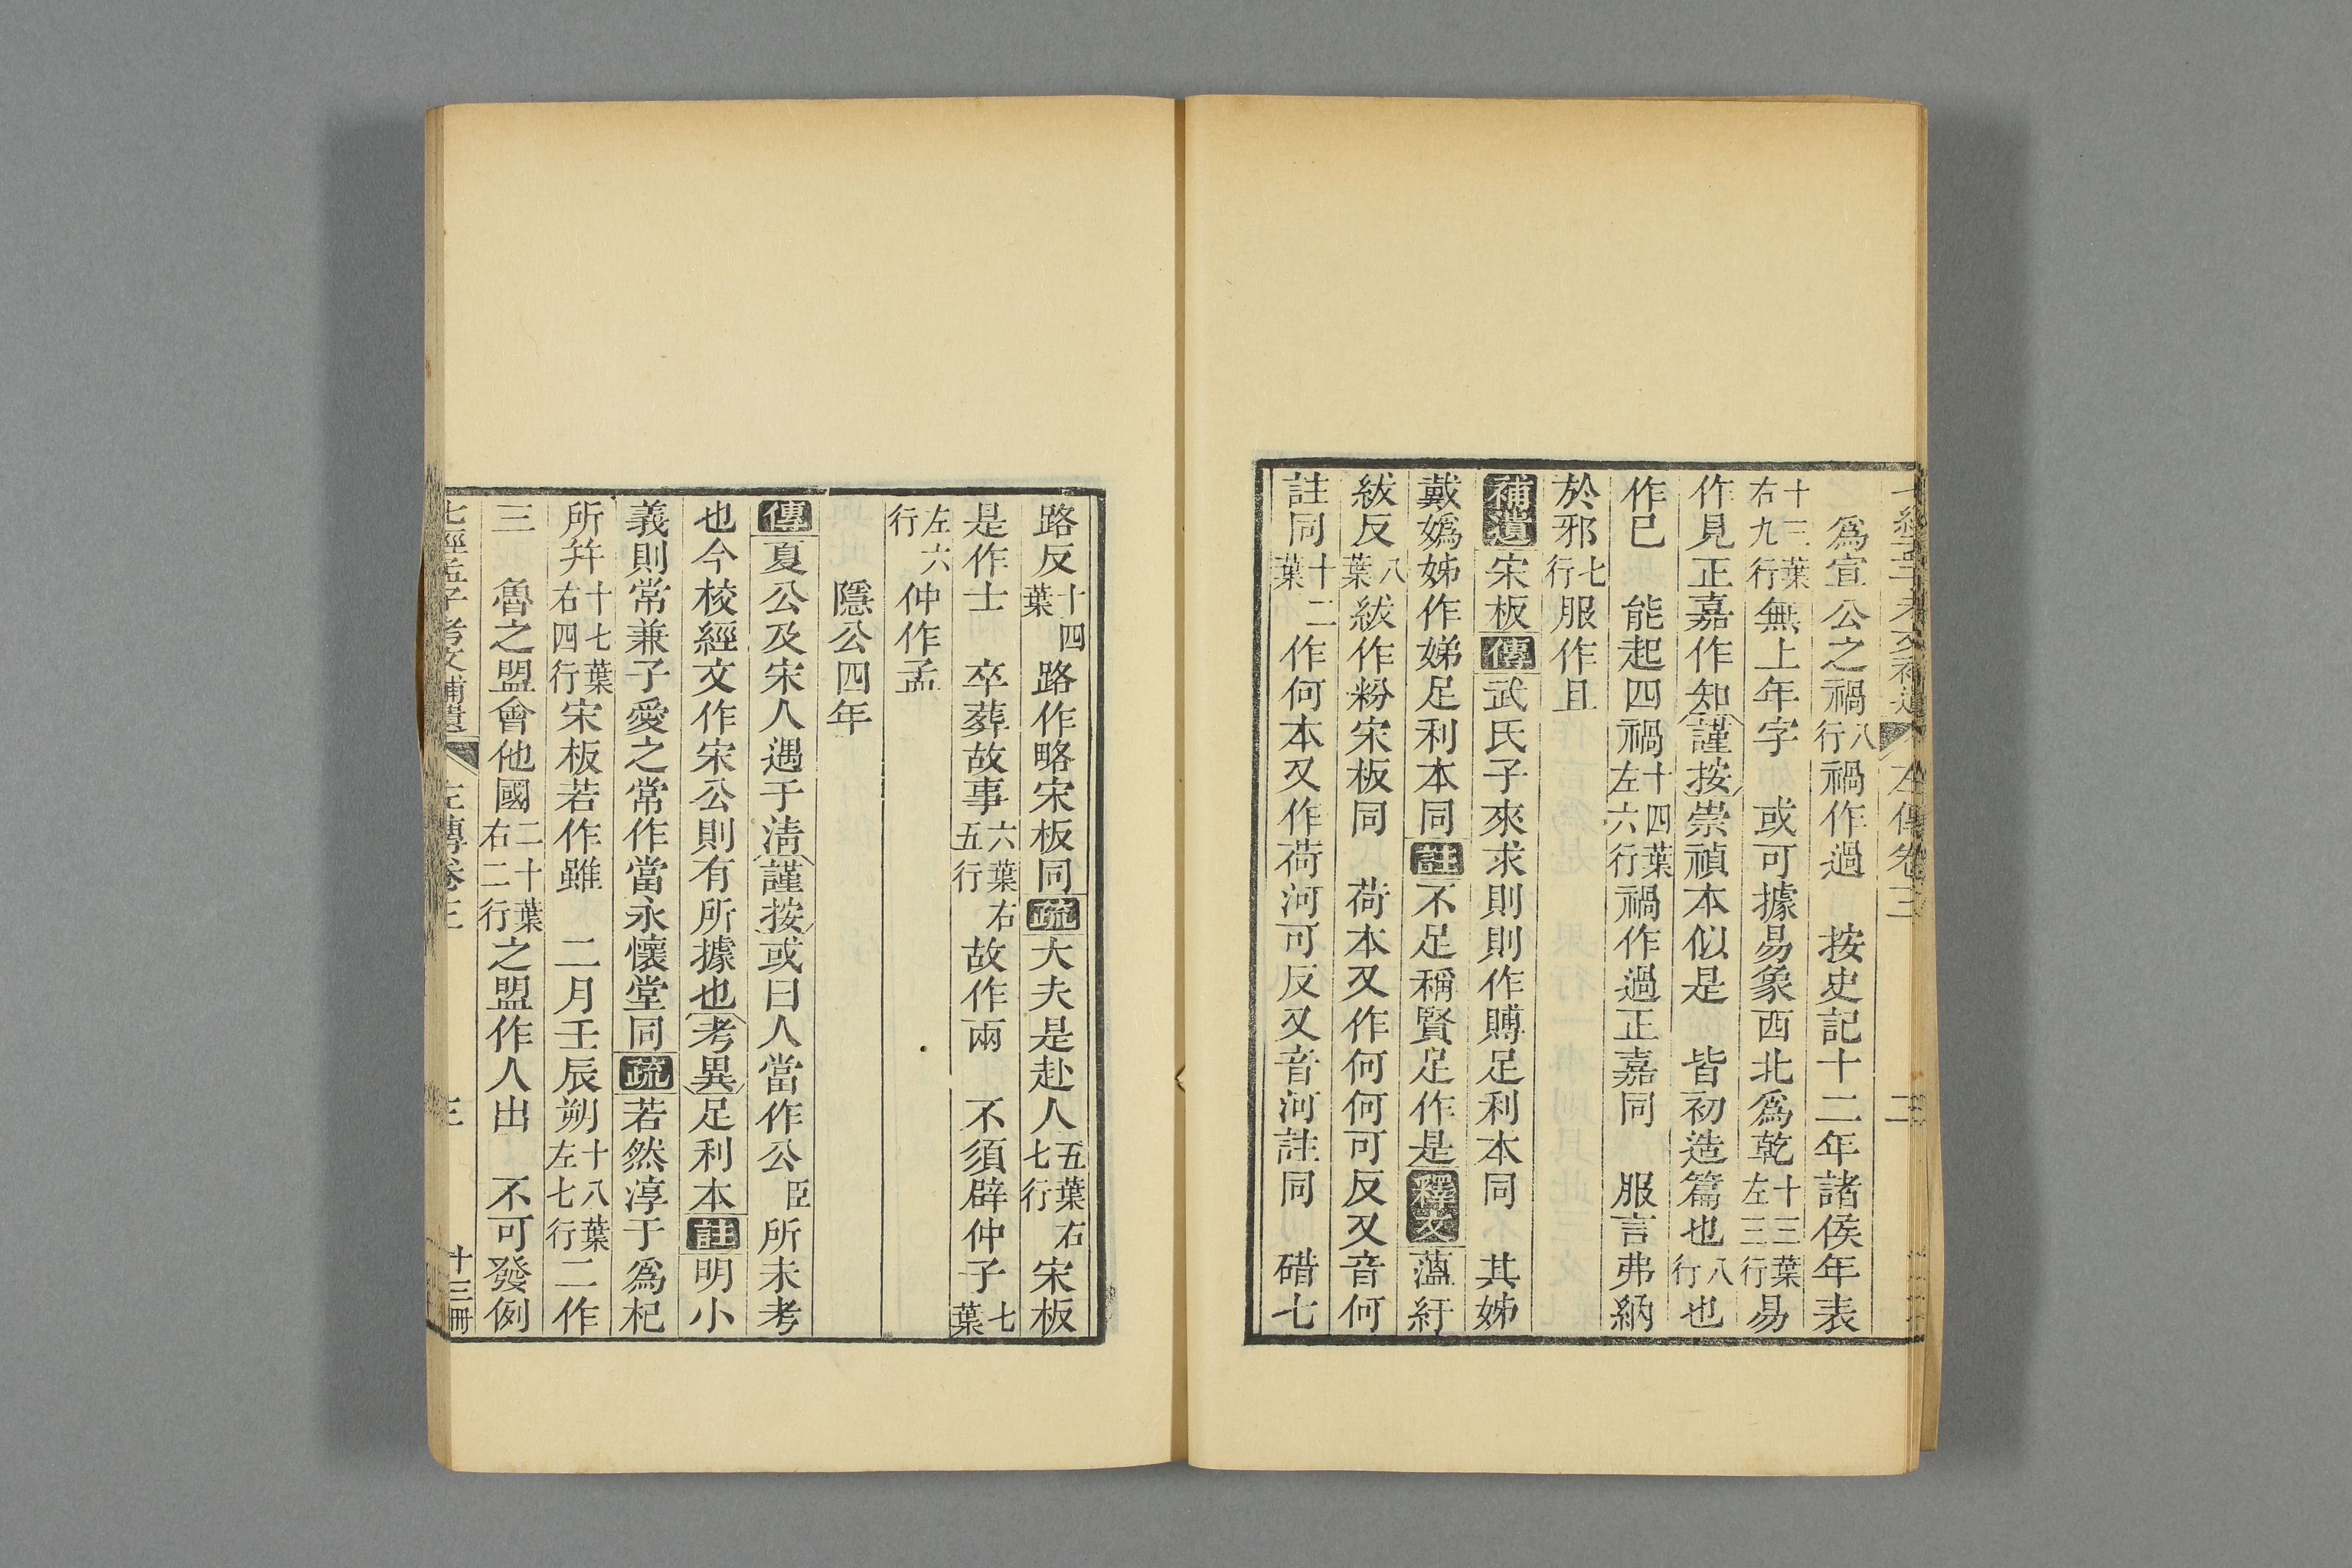 七經孟子考文補遺 左傳卷三 二
爲宣公之禍八行禍作過 按史記十二年諸侯年表
十三葉右九行無上年字 或可據易象西北爲乾十三葉左三行易
作見正嘉作知謹按崇禎本似是 皆初造篇也八行也
作已 能起四禍十四葉左六行禍作過正嘉同 服言弗納
於邪七行服作且
補遺宋板傳武氏子來求則則作賻足利本同 其姊
戴嬀姊作娣足利本同註不足稱賢足作是釋文薀紆
紱反八葉紱作粉宋板同 荷本又作何何可反又音何
註同十二葉作何本又作荷河可反又音河註同 碏七
路反十四葉路作略宋板同疏大夫是赴人五葉右七行宋板
是作士 卒葬故事六葉右五行故作兩 不須辟仲子七葉
左六行仲作孟
隱公四年
傳夏公及宋人遇于淸謹按或曰人當作公臣所未考
也今校經文作宋公則有所據也考異足利本註明小
義則常兼子愛之常作當永懷堂同疏若然淳于爲杞
所并十七葉右四行宋板若作雖 二月壬辰朔十八葉左七行二作
三 魯之盟會他國二十葉右二行之盟作人出 不可發例
七經孟子考文補遺 左傳卷三 三 十三冊